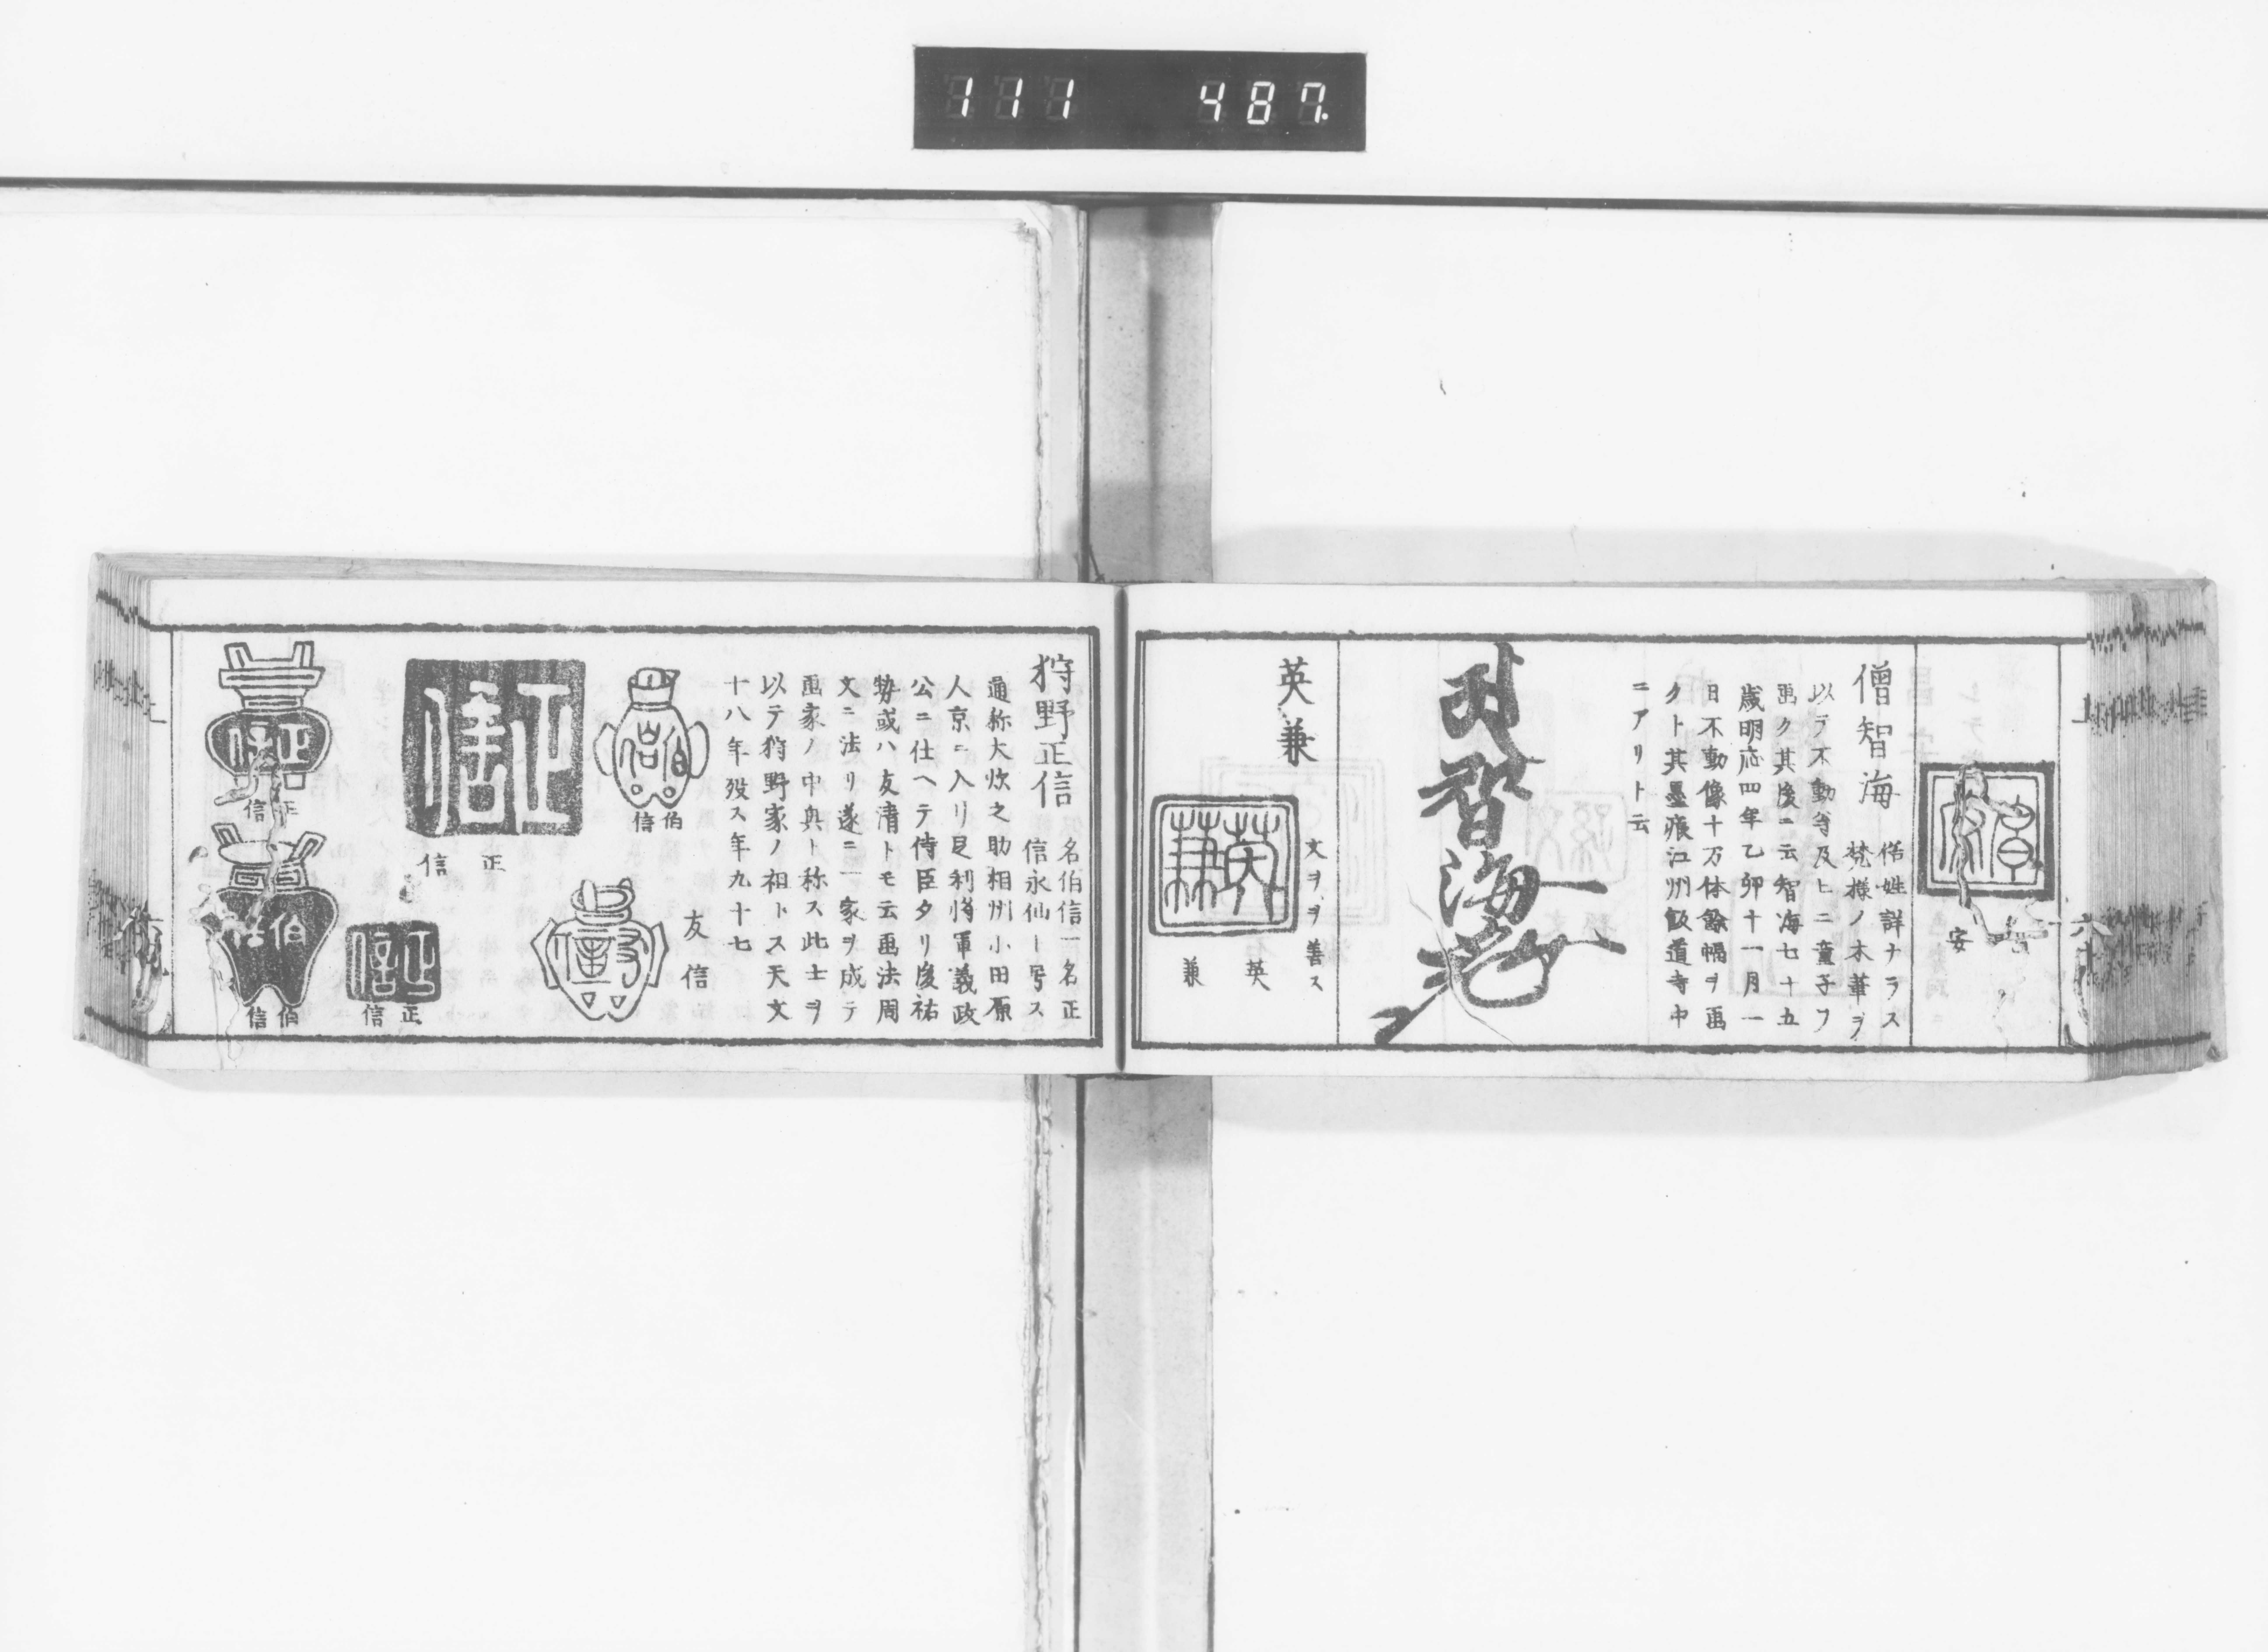 111 487.
安
僧智海
俗姓詳ナラス
梵様ノ木筆ヲ
以テ不動尊及ヒ二童子ヲ
画ク其度ニ云智海七十五
歳明応四年乙卯十一月一
日不動像十万体餘幅ヲ画
クト其墨痕江州飯道寺中
ニアリト云
智海
英兼
文ヲヲ善ス
英兼
英
兼
狩野正信
名伯信一名正
信永仙ト号ス
通称大炊之助相州小田原
人京ニ入リ足利将軍義政
公ニ仕ヘテ侍臣タリ度祐
勢或ハ友清トモ云画法周
文ニ法リ遂ニ一家ヲ成テ
画家ノ中興ト称ス此士ヲ
以テ狩野家ノ祖トス天文
十八年歿ス年九十七
伯信
伯信
友信
正信
正信
正信
正信
正信
正信
伯信
伯信